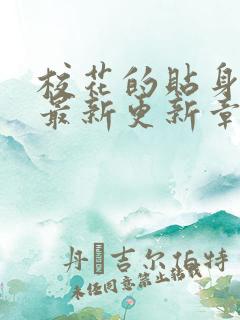 校花的贴身
最新更新章
丹 吉尔伯特
未经同意禁止转载